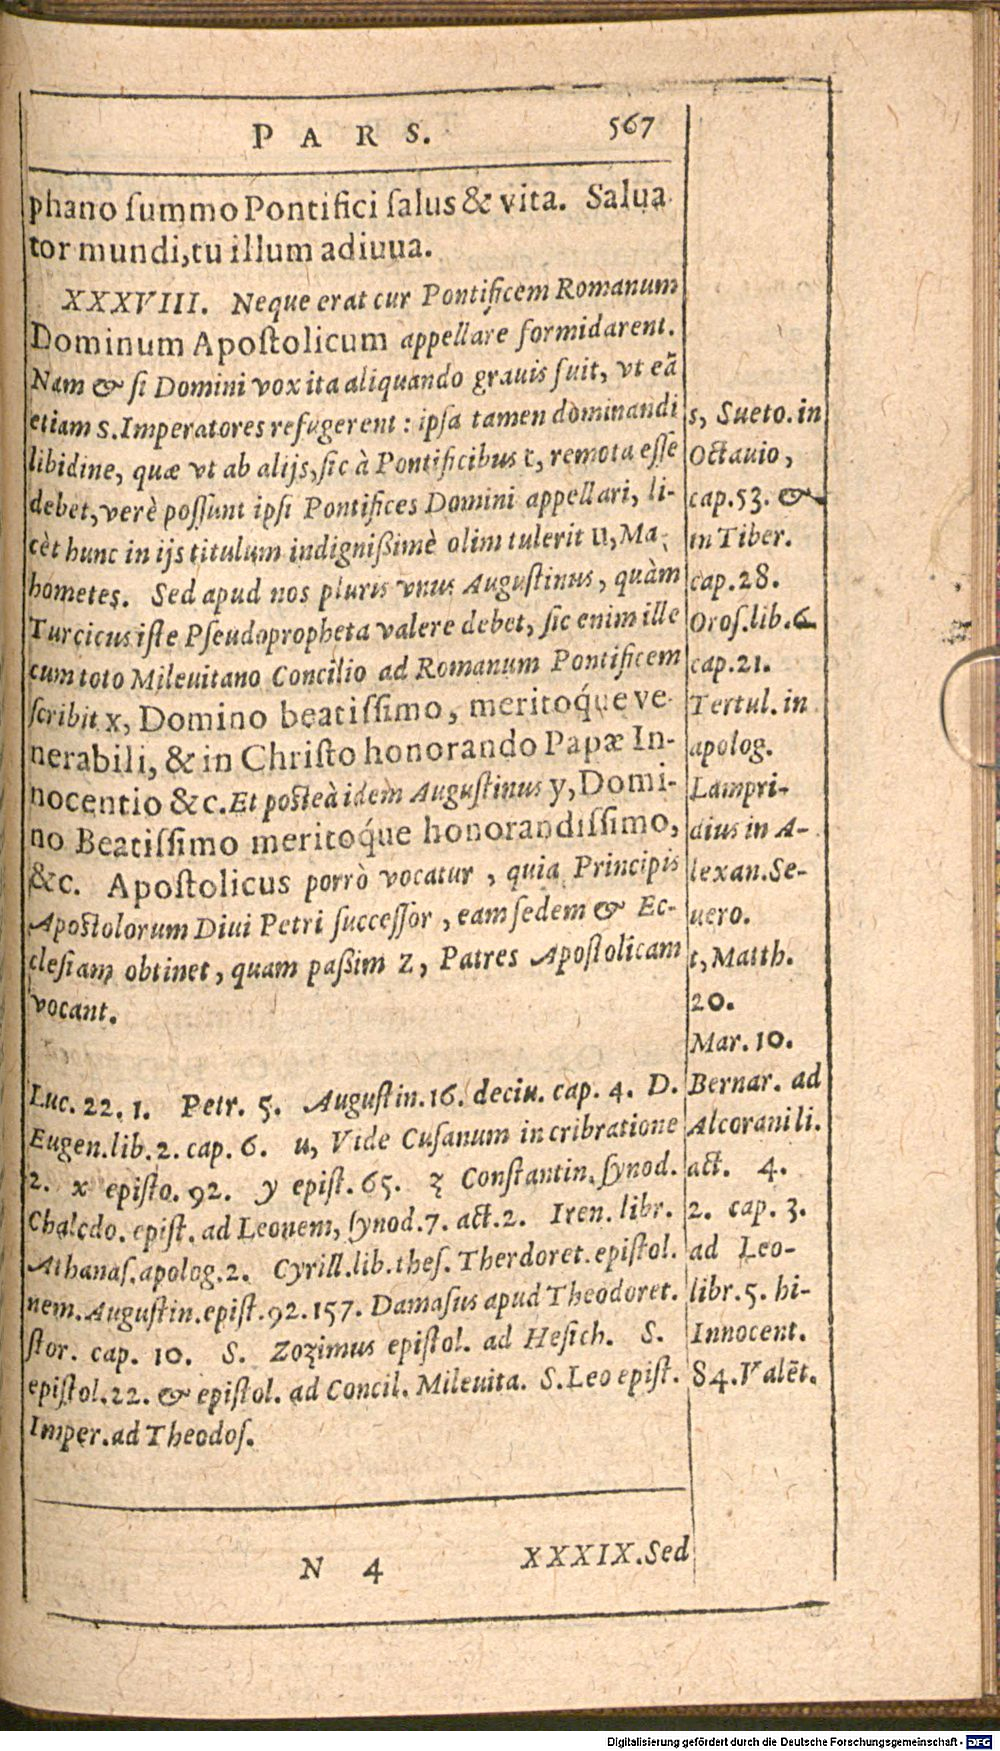 PARS. 567
phano ſummo Pontifici ſalus & vita. Salua-
tor mundi, tu illum adiuua.
XXXVIII. Neque erat cur Pontificem Romanum
Dominum Apoſtolicum appellare formidarent.
Nam & ſi Domini vox ita aliquando grauis fuit, vt eã
etiam s. Imperatores refugerent: ipſa tamen dominandi
libidine, quæ vt ab alijs, ſic à Pontificibus t, remota eſſe
debet, verè poſſunt ipſi Pontifices Domini appellari, li-
cèt hunc in ijs titulum indignißimè olim tulerit u, Ma-
hometes. Sed apud nos pluris vnus Auguſtinus, quàm
Turcicus iſte Pſeudopropheta valere debet, ſic enim ille
cum toto Mileuitano Concilio ad Romanum Pontificem
ſcribit x, Domino beatiſſimo, meritoq́ue ve-
nerabili, & in Chriſto honorando Papæ In-
nocentio &c. Et poſteà idem Auguſtinus y, Domi-
no Beatiſſimo meritoq́ue honorandiſſimo,
&c. Apoſtolicus porrò vocatur, quia Principis
Apoſtolorum Diui Petri ſucceſſor, eam ſedem & Ec-
cleſiam obtinet, quam paßim z, Patres Apoſtolicam
vocant.
s, Sueto. in
Octauio,
cap. 53. &
in Tiber.
cap. 28.
Oroſ. lib. 6
cap. 21.
Tertul. in
apolog.
Lampri-
dius in A-
lexan. Se-
uero.
t, Matth.
20.
Mar. 10.
Luc. 22. 1. Petr. 5. Auguſtin. 16. deciu. cap. 4. D. Bernar. ad
Eugen. lib. 2. cap. 6. u, Vide Cuſanum in cribratione Alcorani li.
2. x epiſto. 92. y epiſt. 65. z Conſtantin. ſynod. act. 4.
Chalcdo. epiſt. ad Leonem, ſynod. 7. act. 2. Iren. libr. 2. cap. 3.
Athanaſ. apolog. 2. Cyrill. lib. theſ. Therdoret. epiſtol. ad Leo-
nem. Auguſtin. epiſt. 92. 157. Damaſus apud Theodoret. libr. 5. hi-
ſtor. cap. 10. S. Zozimus epiſtol. ad Heſich. S. Innocent.
epiſtol. 22. & epiſtol. ad Concil. Mileuita. S. Leo epiſt. 84. Valẽt.
Imper. ad Theodoſ.
N 4 XXXIX. Sed
Digitalisierung gefördert durch die Deutsche Forschungsgemeinschaft - DFG